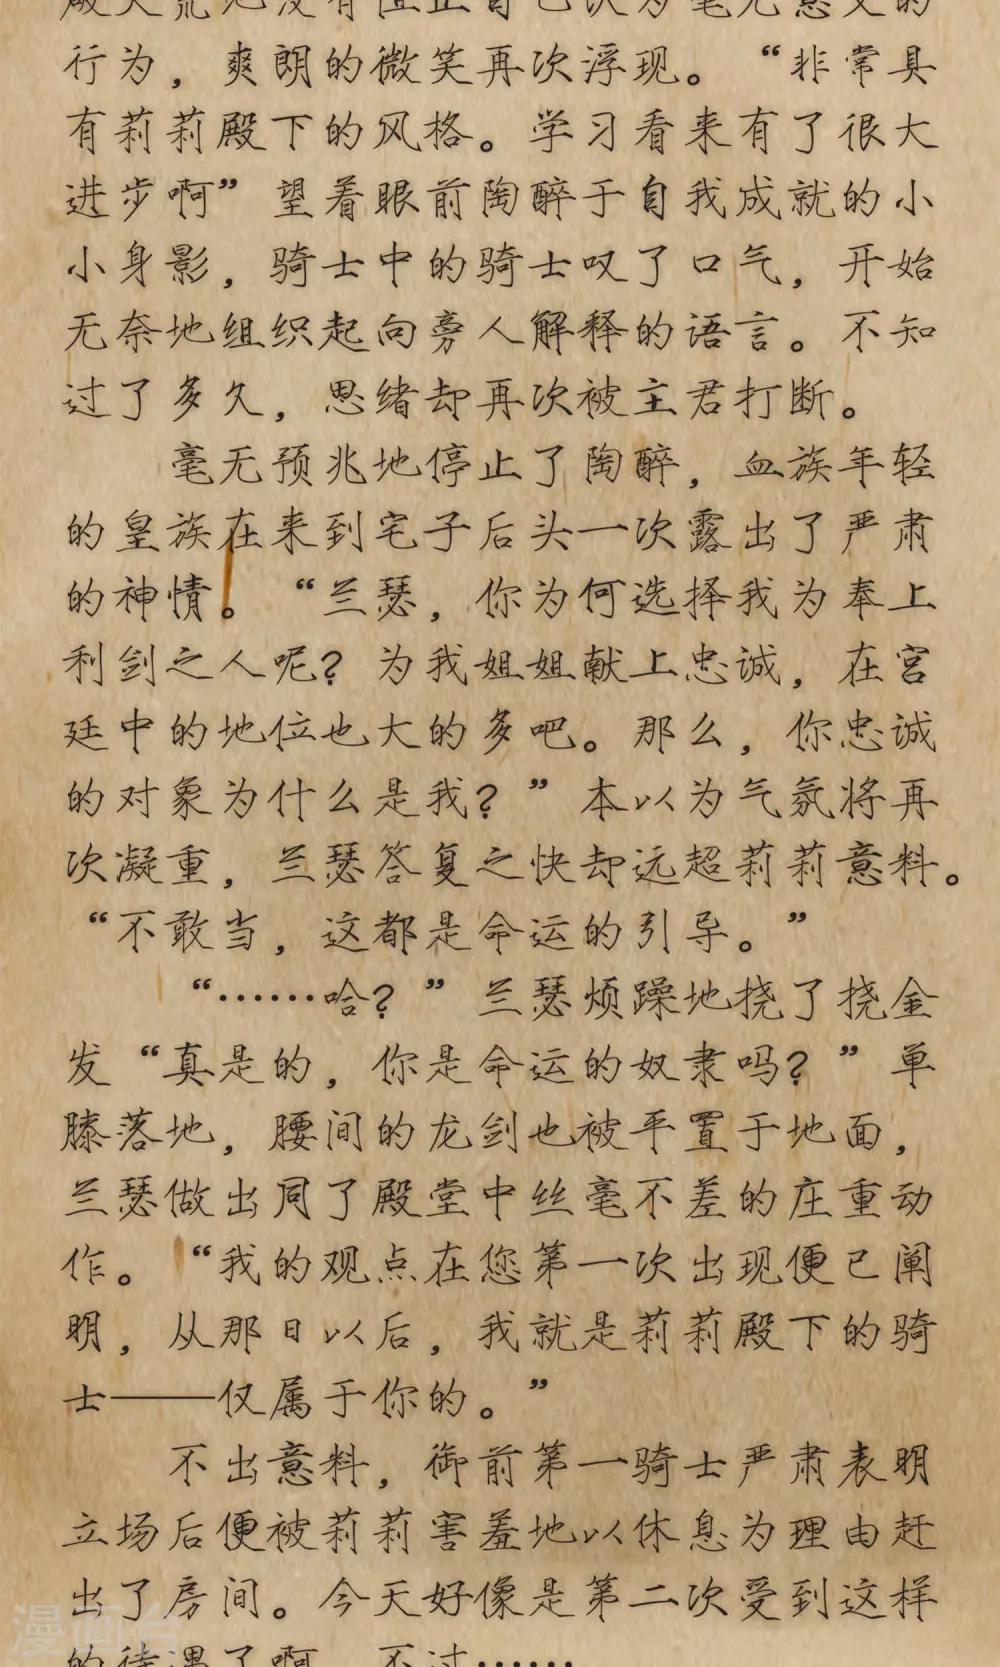 行为，爽朗的微笑再次浮现。“非常具
有莉莉殿下的风格。学习看来有了很大
进步啊”望着眼前陶醉于自我成就的小
小身影，骑士中的骑士叹了口气，开始
无奈地组织起向旁人解释的语言。不知
过了多久，思绪却再次被主君打断。
毫无预兆地停止了陶醉，血族年轻
的皇族在来到宅子后头一次露出了严肃
的神情。“兰瑟，你为何选择我为奉上
利剑之人呢？为我姐姐献上忠诚，在宫
廷中的地位也大的多吧。那么，你忠诚
的对象为什么是我？”本以为气氛将再
次凝重，兰瑟答复之快却远超莉莉意料。
“不敢当，这都是命运的引导。”
“……哈？”兰瑟烦躁地挠了挠金
发“真是的，你是命运的奴隶吗？”单
膝落地，腰间的龙剑也被平置于地面，
兰瑟做出同了殿堂中丝毫不差的庄重动
作。“我的观点在您第一次出现便已阐
明，从那日以后，我就是莉莉殿下的骑
士——仅属于你的。”
不出意料，御前第一骑士严肃表明
立场后便被莉莉害羞地以休息为理由赶
出了房间。今天好像是第二次受到这样
的待遇了啊，不过……
漫画台